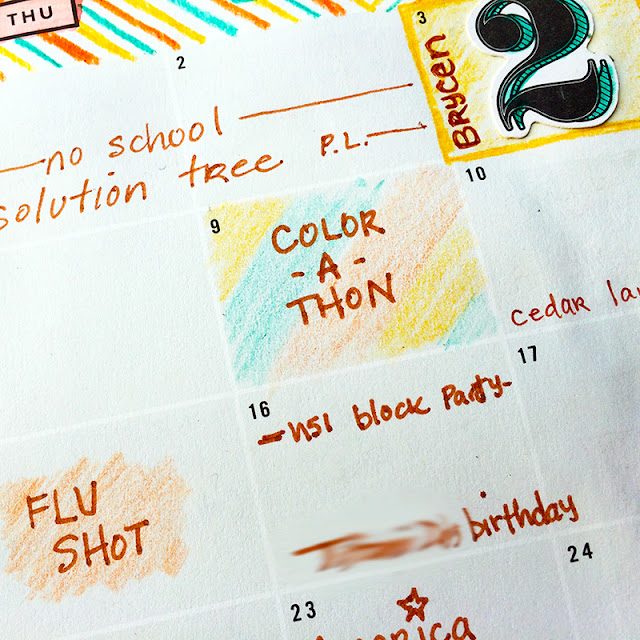 THU
2
3
no school
Brycen
2
solution tree P.L.
9
COLOR
- A -
THON
10
cedar
16
- hsi block Party-
17
FLU
SHOT
birthday
23
24